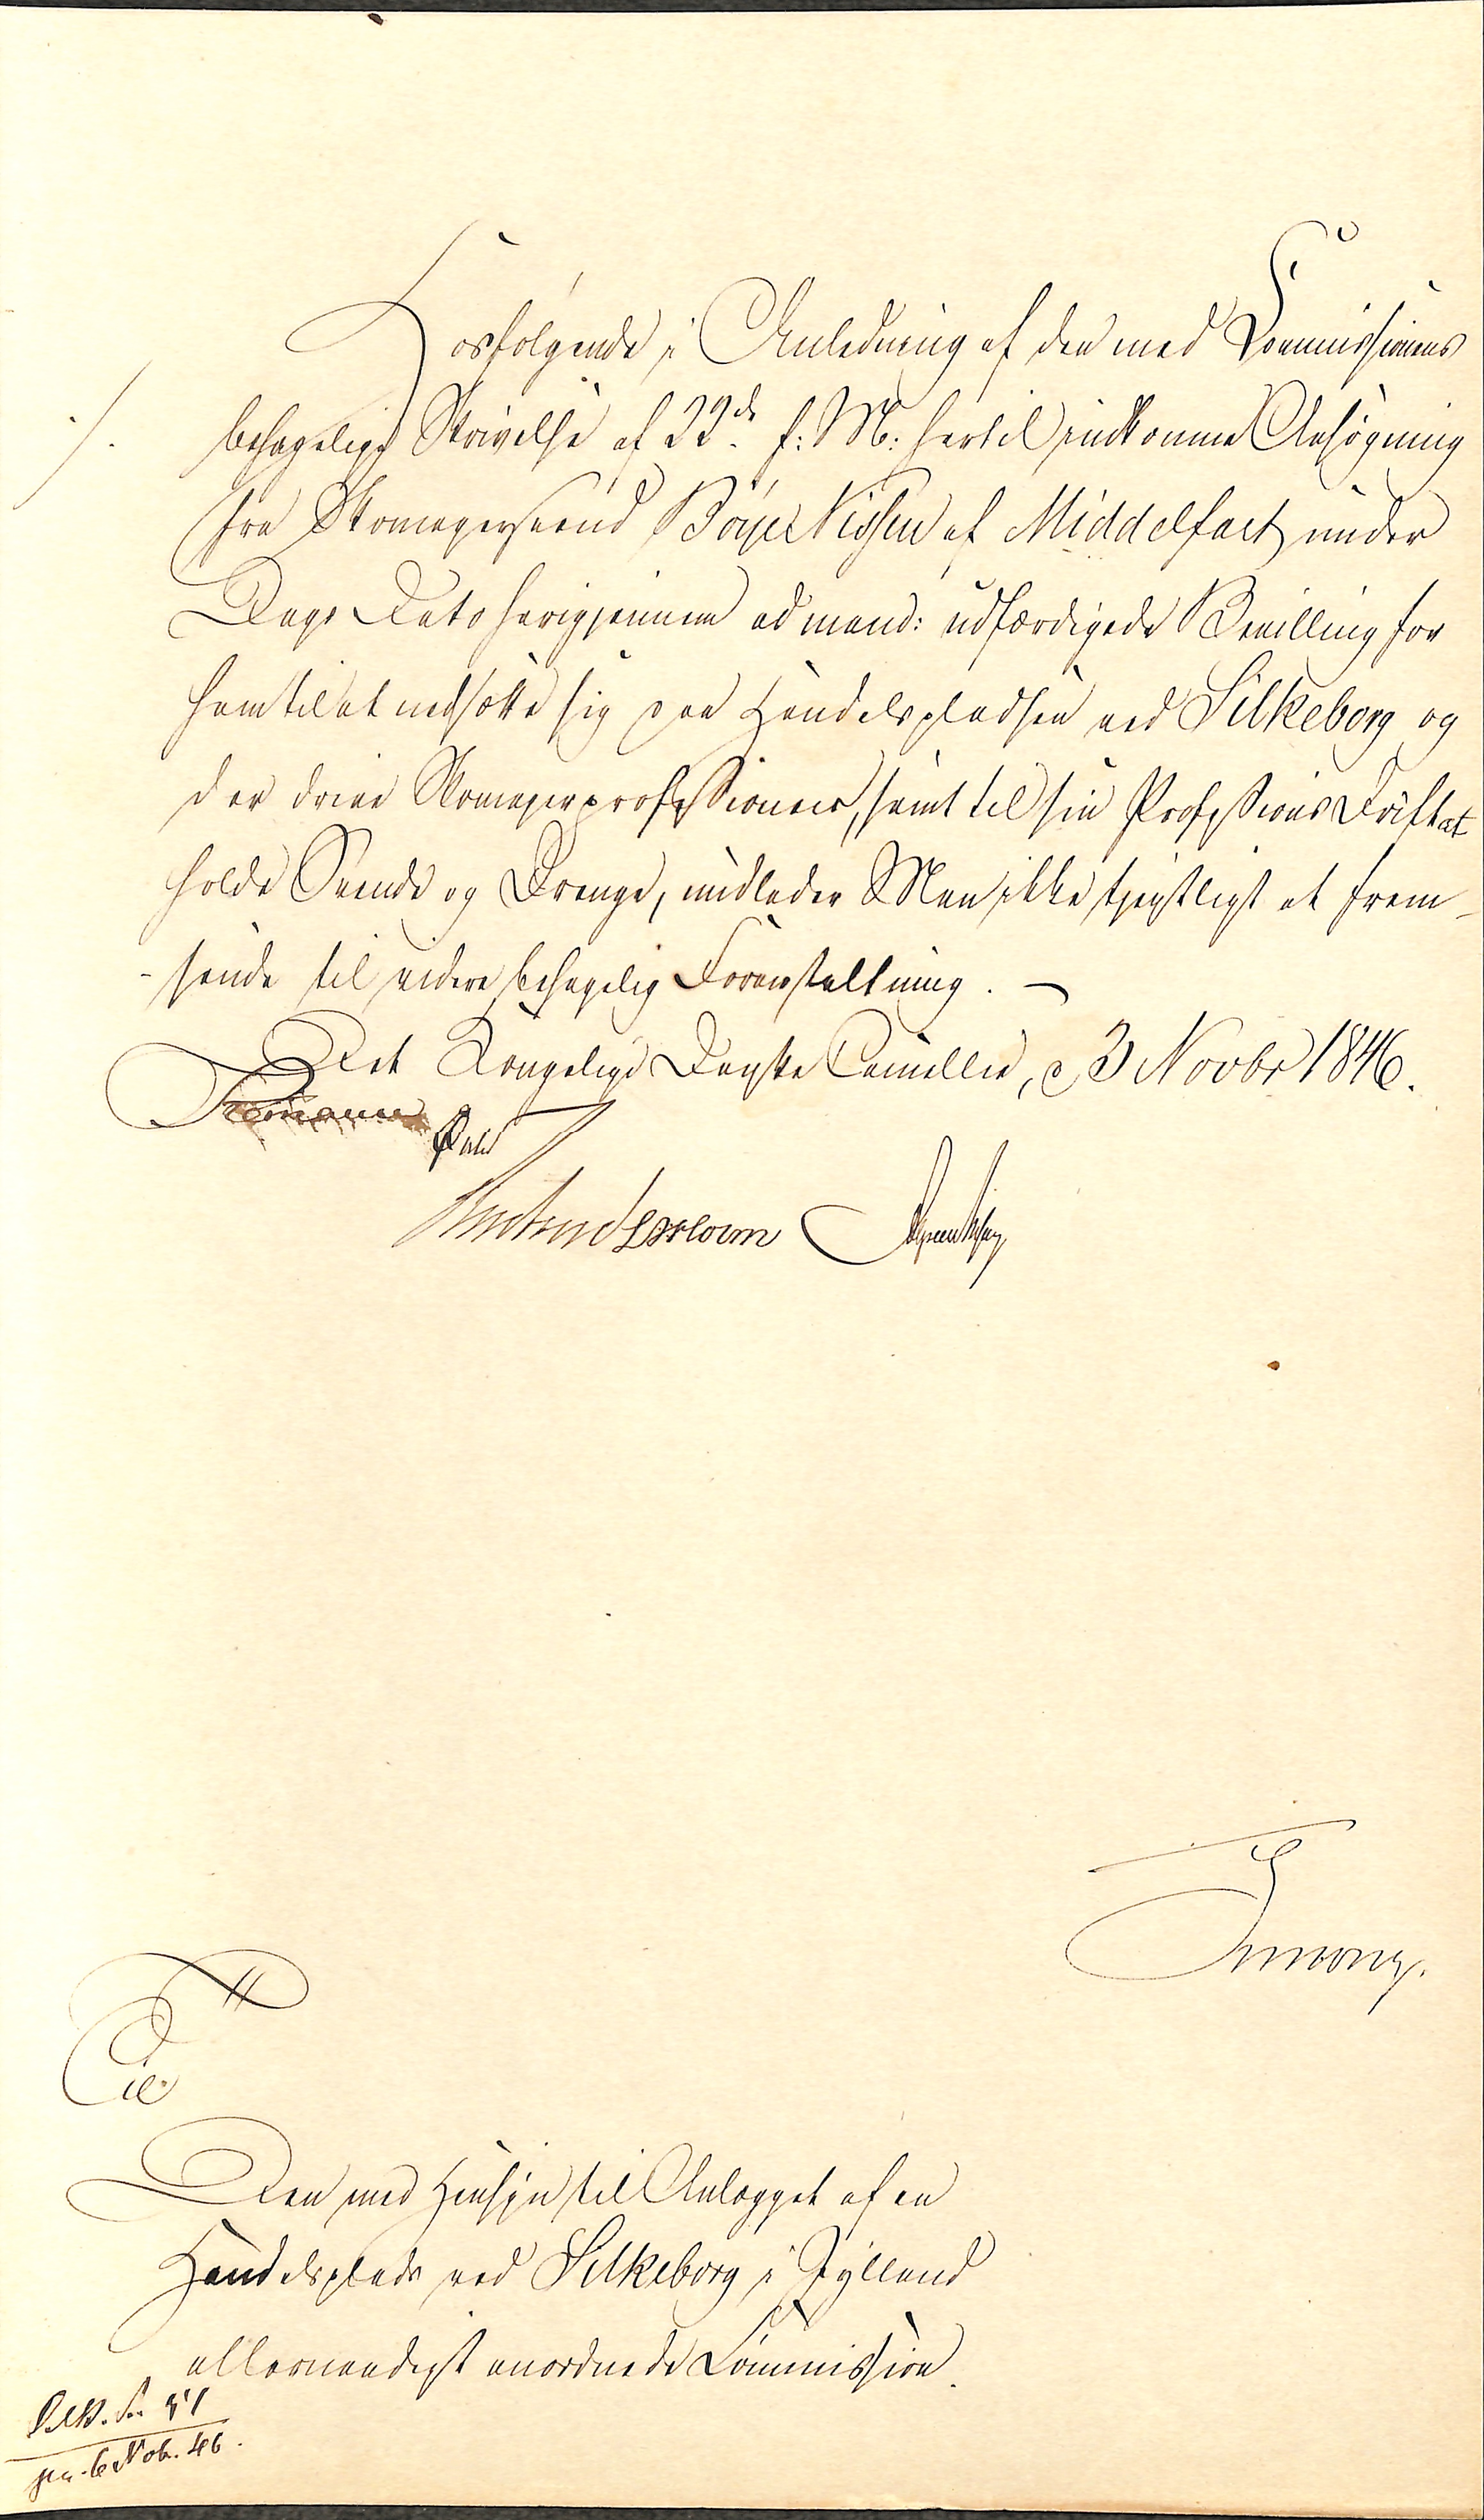 Hosfølgende i Anledning af den med Commissionens
behagelige Skrivelse af 22de f: M: hertil indkomne Ansøgning
fra Skomagersvend Böye Nissen af Middelfart under
Dags Dato herigjennem ad mand: udfærdigede Bevilling for
ham til at nedsætte sig paa Handelspladsen ved Silkeborg og
der drive Skomagerprofessionen, samt til sin Professions Drift at
holde Svende og Drenge, undlader Man ikke tjenstligst at frem-
-sende til videre behagelig Foranstaltning. -
Det Kongelige Danske Cancellie, d 3 Novbr 1846.
Til
Den med Hensyn til Anlægget af en
Handelsplads ved Silkeborg i Jylland
allernaadigst anordnede Commission.
6 Nob. 46.